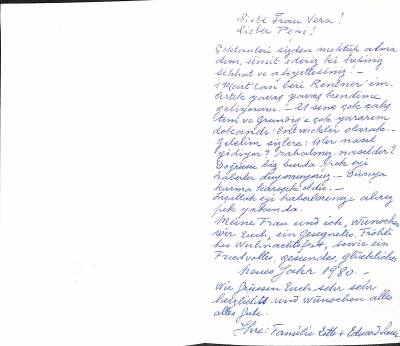 Liebe Frau Vera!
Lieber Pepi!
Çoktanberi sizden mektup alma
dım, ümit ederiz ki hepiniz
sıhhat ve afiyettesiniz! -
1 Mart'tan beri Rentner'im.
Artık yavaş yavaş kendime
geliyorum. - 21 sene çok çalış
tım ve Grundig'e çok yararım
dokandı: Entwickler olarak. -
Gelelim sizlere: işler nasıl
gidiyor? rahatınız nasıldır?
Doğrusu biz burda pek iyi
haberler duymuyoruz. - Dünya
karma karışık oldu. -
İnşallah iyi haberlerinizi alırız
pek yakında.
Meine Frau und ich, wünschen
wir Euch, ein Gesegnetes, Fröhli
ches Weihnachtsfest, sowie ein
Friedvolles, gesundes, glückliches
neues Jahr 1980. -
Wir Grüssen Euch sehr sehr
herzlichst und wünschen alles
alles Gute.
Ihre: Familie + Eduard